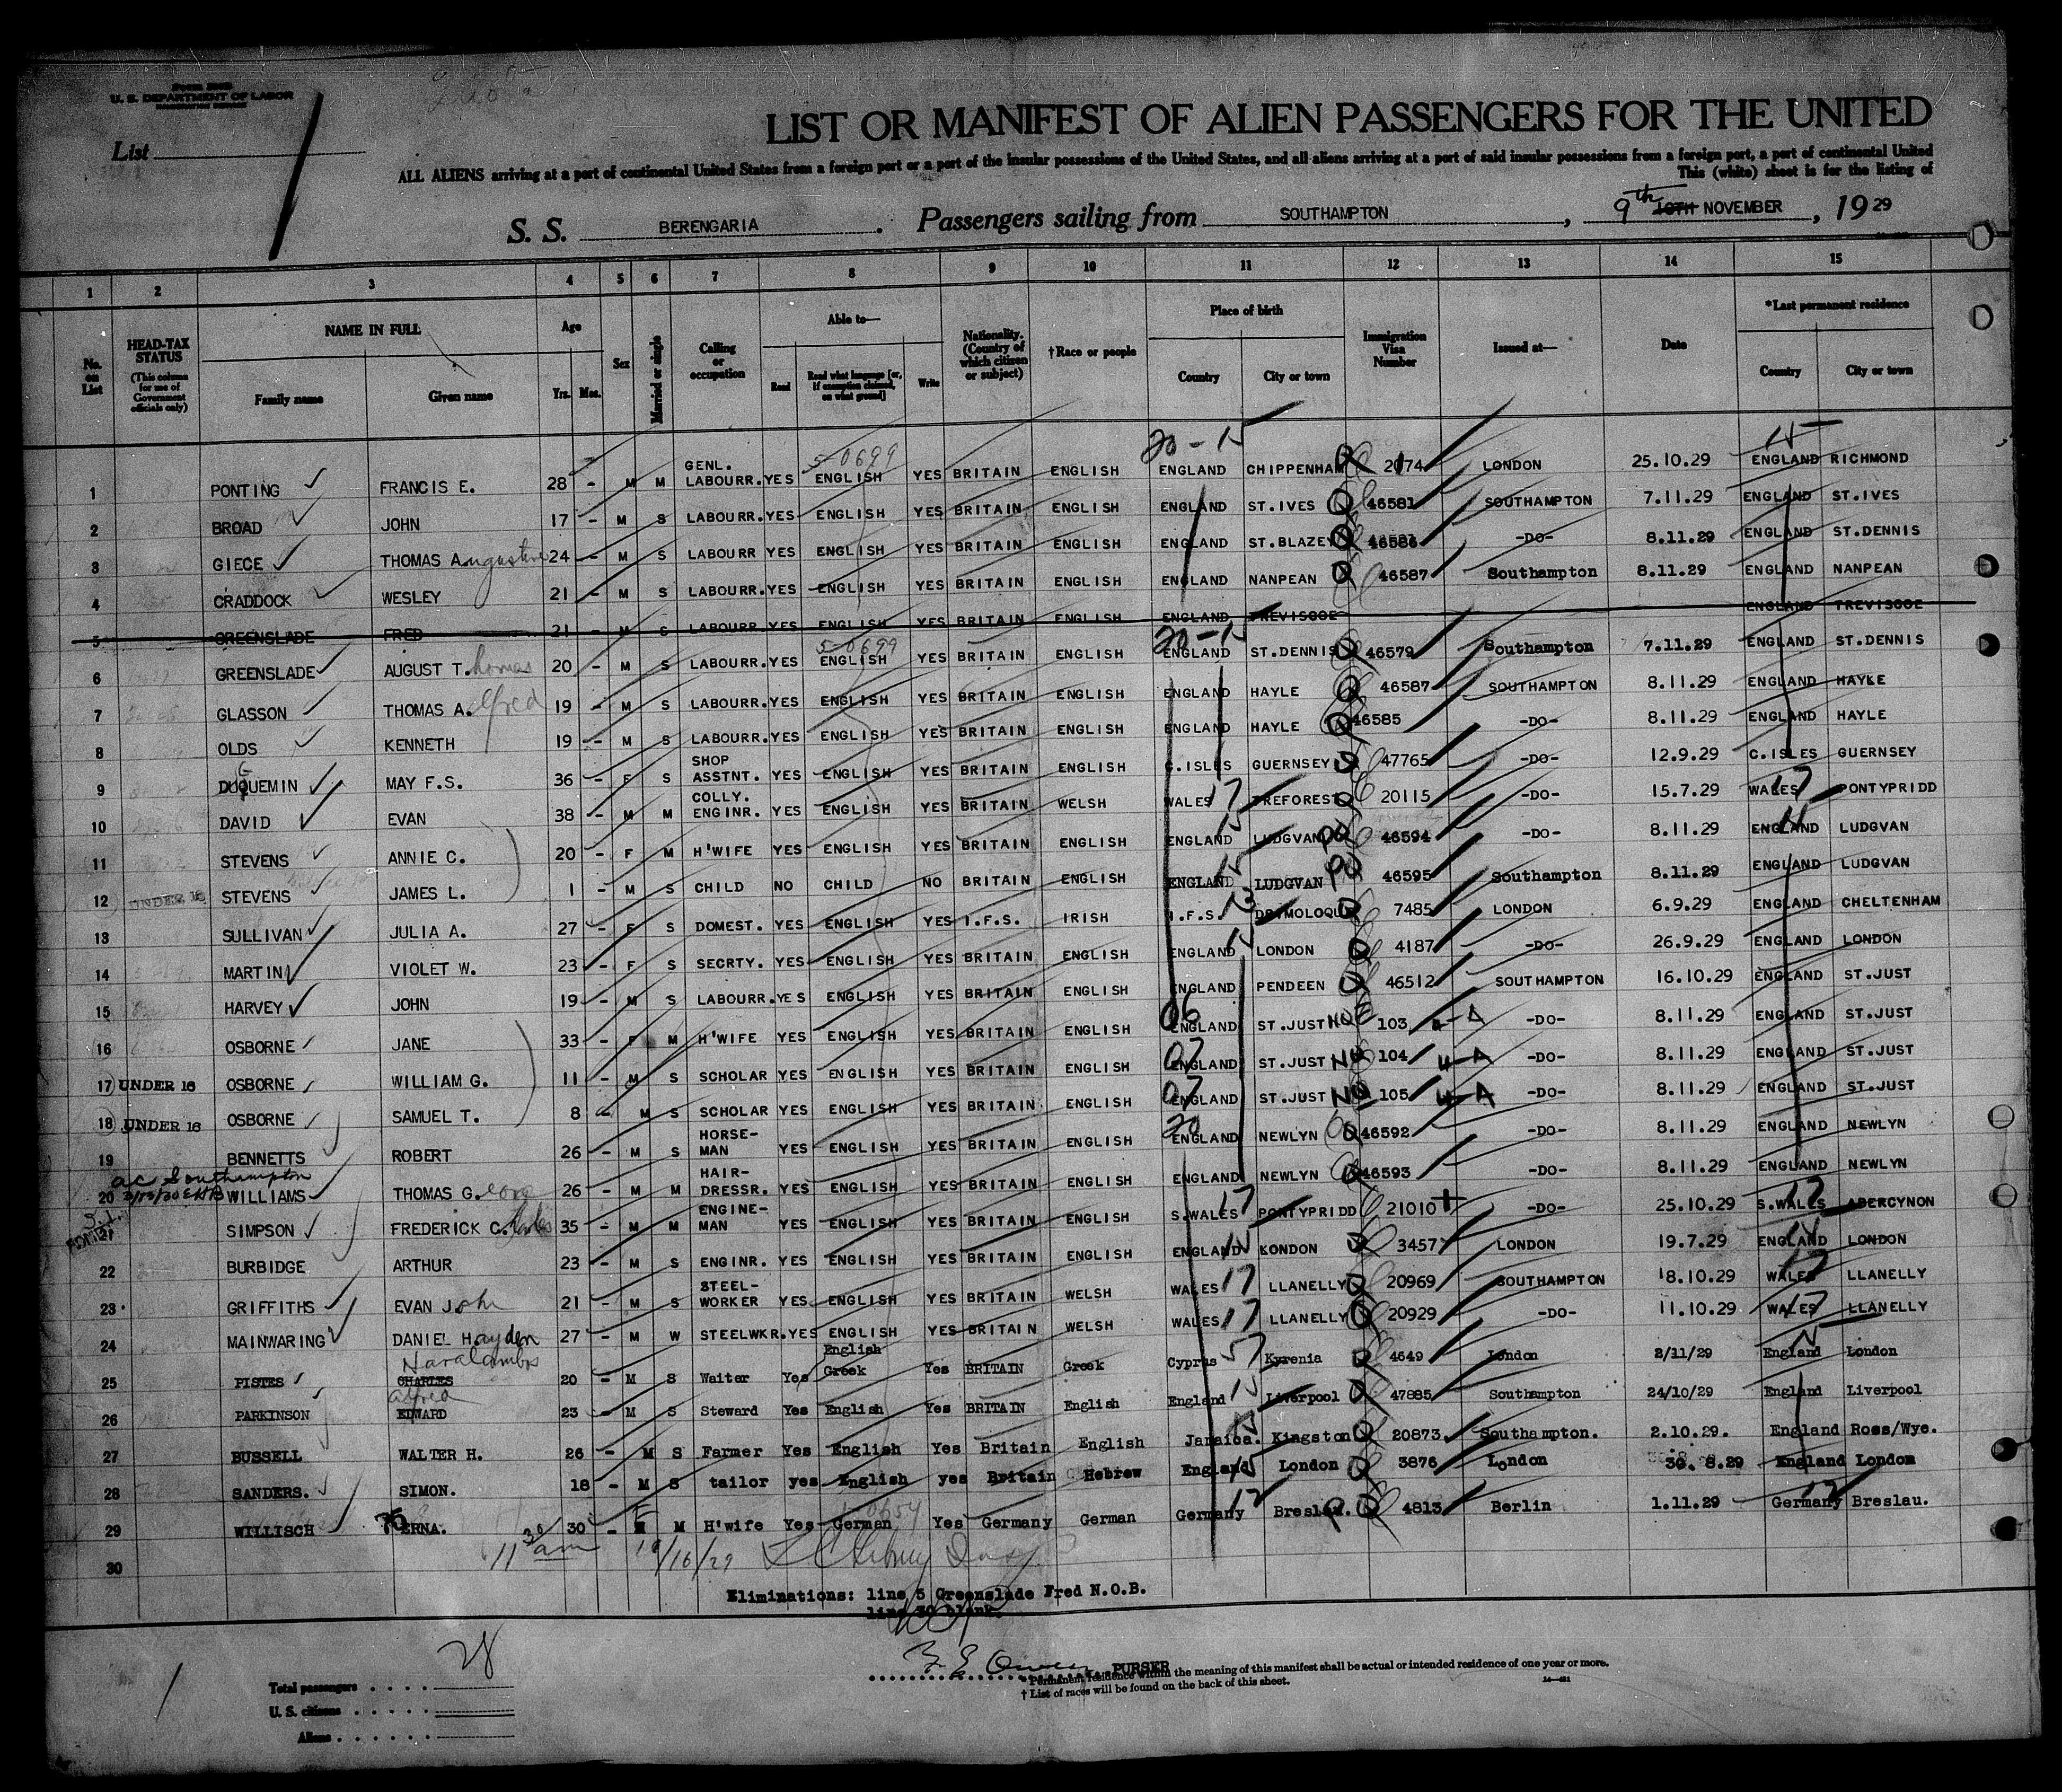 U. S. DEPARTMENT OF LABOR
List
LIST OR MANIFEST OF ALIEN PASSENGERS FOR THE UNITED
ALL ALIENS arriving at a port of continental United States from a foreign port or a port of the insular possessions of the United States, and all aliens arriving at a port of said insular possessions from a foreign port, a port of continental United
This (white) sheet is for the listing of
S. S. BERENGARIA. Passengers sailing from SOUTHAMPTON, 9th 10TH NOVEMBER, 1929
1 2 3 4 5 6 7 8 9 10 11 12 13 14 15
No. on List HEAD-TAX STATUS (This column for use of Government officials only) NAME IN FULL Family name Given name Age Yrs. Mos. Sex Married or single Calling or occupation Able to— Read Read what language [or, if exemption claimed, on what ground] Write Nationality. (Country of which citizen or subject) †Race or people Place of birth Country City or town Immigration Visa Number Issued at— Date *Last permanent residence Country City or town
20-15 15
5-0699
1 PONTING FRANCIS E. 28 - M M GENL. LABOURR. YES ENGLISH YES BRITAIN ENGLISH ENGLAND CHIPPENHAM 2174 LONDON 25.10.29 ENGLAND RICHMOND
2 BROAD JOHN 17 - M S LABOURR. YES ENGLISH YES BRITAIN ENGLISH ENGLAND ST.IVES 46581 SOUTHAMPTON 7.11.29 ENGLAND ST.IVES
3 GIECE THOMAS Augustine 24 - M S LABOURR YES ENGLISH YES BRITAIN ENGLISH ENGLAND ST.BLAZEY -DO- 8.11.29 ENGLAND ST.DENNIS
4 CRADDOCK WESLEY 21 - M S LABOURR. YES ENGLISH YES BRITAIN ENGLISH ENGLAND NANPEAN 46587 Southampton 8.11.29 ENGLAND NANPEAN
5 GREENSLADE FRED 21 - M S LABOURR. YES ENGLISH YES BRITAIN ENGLISH ENGLAND TREVISCOE ENGLAND TREVISCOE
20-15
5-0699
6 GREENSLADE AUGUST T.homas 20 - M S LABOURR. YES ENGLISH YES BRITAIN ENGLISH ENGLAND ST.DENNIS 46579 Southampton 7.11.29 ENGLAND ST.DENNIS
7 GLASSON THOMAS A.lfred 19 - M S LABOURR. YES ENGLISH YES BRITAIN ENGLISH ENGLAND HAYLE 46587 SOUTHAMPTON 8.11.29 ENGLAND HAYLE
8 OLDS KENNETH 19 - M S LABOURR. YES ENGLISH YES BRITAIN ENGLISH ENGLAND HAYLE 46585 -DO- 8.11.29 ENGLAND HAYLE
9 DUQUEMIN MAY F.S. 36 - F S SHOP ASSTNT. YES ENGLISH YES BRITAIN ENGLISH C.ISLES GUERNSEY 47765 -DO- 12.9.29 C.ISLES GUERNSEY
10 DAVID EVAN 38 - M M COLLY. ENGINR. YES ENGLISH YES BRITAIN WELSH WALES 17 TREFOREST 20115 -DO- 15.7.29 WALES 17 PONTYPRIDD
11 STEVENS ANNIE C. 20 - F M H'WIFE YES ENGLISH YES BRITAIN ENGLISH ENGLAND 15 LUDGVAN 46594 -DO- 8.11.29 ENGLAND LUDGVAN
12 UNDER 16 STEVENS JAMES L. 1 - M S CHILD NO CHILD NO BRITAIN ENGLISH ENGLAND 15 LUDGVAN 46595 Southampton 8.11.29 ENGLAND LUDGVAN
13 SULLIVAN JULIA A. 27 - F S DOMEST. YES ENGLISH YES I.F.S. IRISH I.F.S. 13 DRIMOLOQUE 7485 LONDON 6.9.29 ENGLAND CHELTENHAM
14 MARTIN VIOLET W. 23 - F S SECRTY. YES ENGLISH YES BRITAIN ENGLISH ENGLAND 15 LONDON 4187 -DO- 26.9.29 ENGLAND LONDON
15 HARVEY JOHN 19 - M S LABOURR. YES ENGLISH YES BRITAIN ENGLISH ENGLAND PENDEEN 46512 SOUTHAMPTON 16.10.29 ENGLAND ST.JUST
16 OSBORNE JANE 33 - F M H'WIFE YES ENGLISH YES BRITAIN ENGLISH 06 ENGLAND ST.JUST NQ 103 4-A -DO- 8.11.29 ENGLAND ST.JUST
17 UNDER 16 OSBORNE WILLIAM G. 11 - M S SCHOLAR YES ENGLISH YES BRITAIN ENGLISH 07 ENGLAND ST.JUST NQ 104 4-A -DO- 8.11.29 ENGLAND ST.JUST
18 UNDER 16 OSBORNE SAMUEL T. 8 - M S SCHOLAR YES ENGLISH YES BRITAIN ENGLISH 07 ENGLAND ST.JUST NQ 105 4-A -DO- 8.11.29 ENGLAND ST.JUST
19 BENNETTS ROBERT 26 - M S HORSE-MAN YES ENGLISH YES BRITAIN ENGLISH 20 ENGLAND NEWLYN 46592 -DO- 8.11.29 ENGLAND NEWLYN
ac Southampton
20 WILLIAMS THOMAS G.eorge 26 - M M HAIR-DRESSR. YES ENGLISH YES BRITAIN ENGLISH ENGLAND NEWLYN 46593 -DO- 8.11.29 ENGLAND NEWLYN
21 SIMPSON FREDERICK C.harles 35 - M M ENGINE-MAN YES ENGLISH YES BRITAIN ENGLISH S.WALES 17 PONTYPRIDD 21010 -DO- 25.10.29 S.WALES 17 ABERCYNON
22 BURBIDGE ARTHUR 23 - M S ENGINR. YES ENGLISH YES BRITAIN ENGLISH ENGLAND 15 KONDON 3457 LONDON 19.7.29 ENGLAND LONDON
23 GRIFFITHS EVAN John 21 - M S STEEL-WORKER YES ENGLISH YES BRITAIN WELSH WALES 17 LLANELLY 20969 SOUTHAMPTON 18.10.29 WALES 17 LLANELLY
24 MAINWARING DANIEL Hayden 27 - M W STEELWKR. YES ENGLISH YES BRITAIN WELSH WALES 17 LLANELLY 20929 -DO- 11.10.29 WALES 17 LLANELLY
25 PISTES Haralambos CHARLES 20 - M S Waiter Yes English Greek Yes BRITAIN Greek Cyprus 57 Kyrenia 4649 London 2/11/29 England London
26 PARKINSON alfred EDWARD 23 - M S Steward Yes English Yes BRITAIN English England 15 Liverpool 47885 Southampton 24/10/29 England Liverpool
27 BUSSELL WALTER H. 26 - M S Farmer Yes English Yes Britain English Jamaica. Kingston 20873 Southampton. 2.10.29. England Ross/Wye.
28 SANDERS. SIMON. 18 - M S tailor yes English yes Britain Hebrew England 15 London 3876 London 30. 8.29 England London
29 WILLISCH ERNA. 30 - F M H'wife Yes German Yes Germany German Germany 12 Breslau. 4813 Berlin 1.11.29 Germany 12 Breslau.
30 11 30 am
Eliminations: line 5 Greenslade Fred N.O.B.
line 30 blank.
PURSER
* Permanent residence within the meaning of this manifest shall be actual or intended residence of one year or more.
† List of races will be found on the back of this sheet.
28
Total passengers
U. S. citizens
Aliens